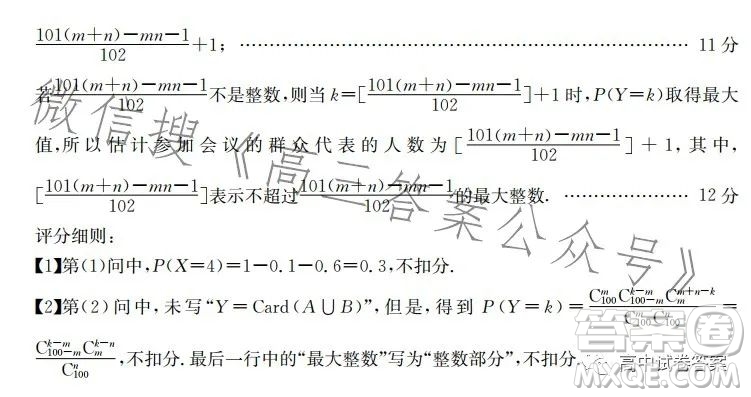 $\frac{101(m+n)-mn-1}{102}+1$; …… 11 分
若$\frac{101(m+n)-mn-1}{102}$不是整数,则当 $k=[\frac{101(m+n)-mn-1}{102}]+1$ 时,$P(Y=k)$取得最大
值,所以估计参加会议的群众代表的人数为$[\frac{101(m+n)-mn-1}{102}]+1$,其中,
$[\frac{101(m+n)-mn-1}{102}]$表示不超过$\frac{101(m+n)-mn-1}{102}$的最大整数. …… 12 分
评分细则:
【1】第(1)问中,$P(X=4)=1-0.1-0.6=0.3$,不扣分.
【2】第(2)问中,未写“$Y=\mathrm{Card}(A\cup B)$”,但是,得到 $P(Y=k)=\frac{C_{100}^{m}C_{100-m}^{k-m}C_{m}^{m+n-k}}{C_{100}^{m}C_{100}^{n}}=$
$\frac{C_{100-m}^{k-m}C_{m}^{k-n}}{C_{100}^{n}}$,不扣分.最后一行中的“最大整数”写为“整数部分”,不扣分.
微信搜《高三答案公众号》
答案卷
高中试卷答案
MXQE.COM